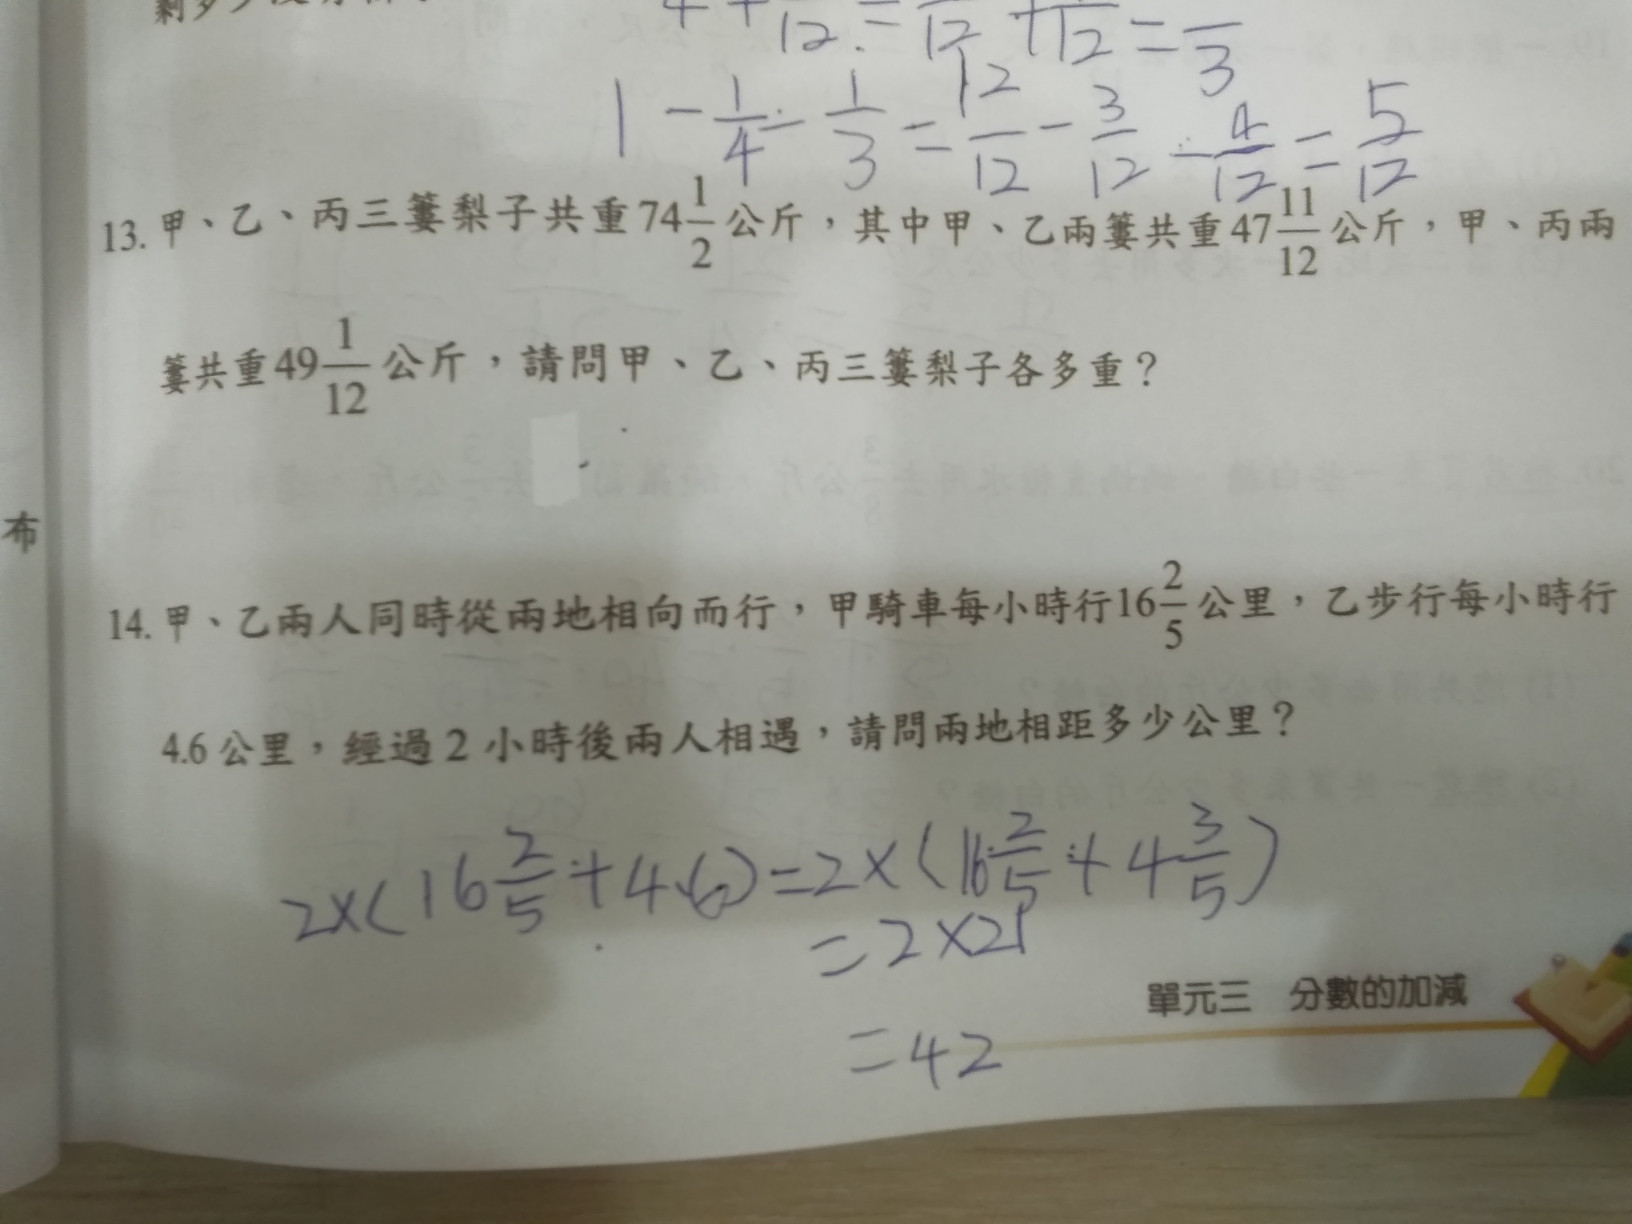 1 - 1/4 - 1/3 = 12/12 - 3/12 - 4/12 = 5/12
13. 甲、乙、丙三簍梨子共重74 1/2公斤，其中甲、乙兩簍共重47 11/12公斤，甲、丙兩
簍共重49 1/12公斤，請問甲、乙、丙三簍梨子各多重？
布
14. 甲、乙兩人同時從兩地相向而行，甲騎車每小時行16 2/5公里，乙步行每小時行
4.6公里，經過2小時後兩人相遇，請問兩地相距多少公里？
2×(16 2/5+4.6)=2×(16 2/5+4 3/5)
=2×21
單元三 分數的加減
=42